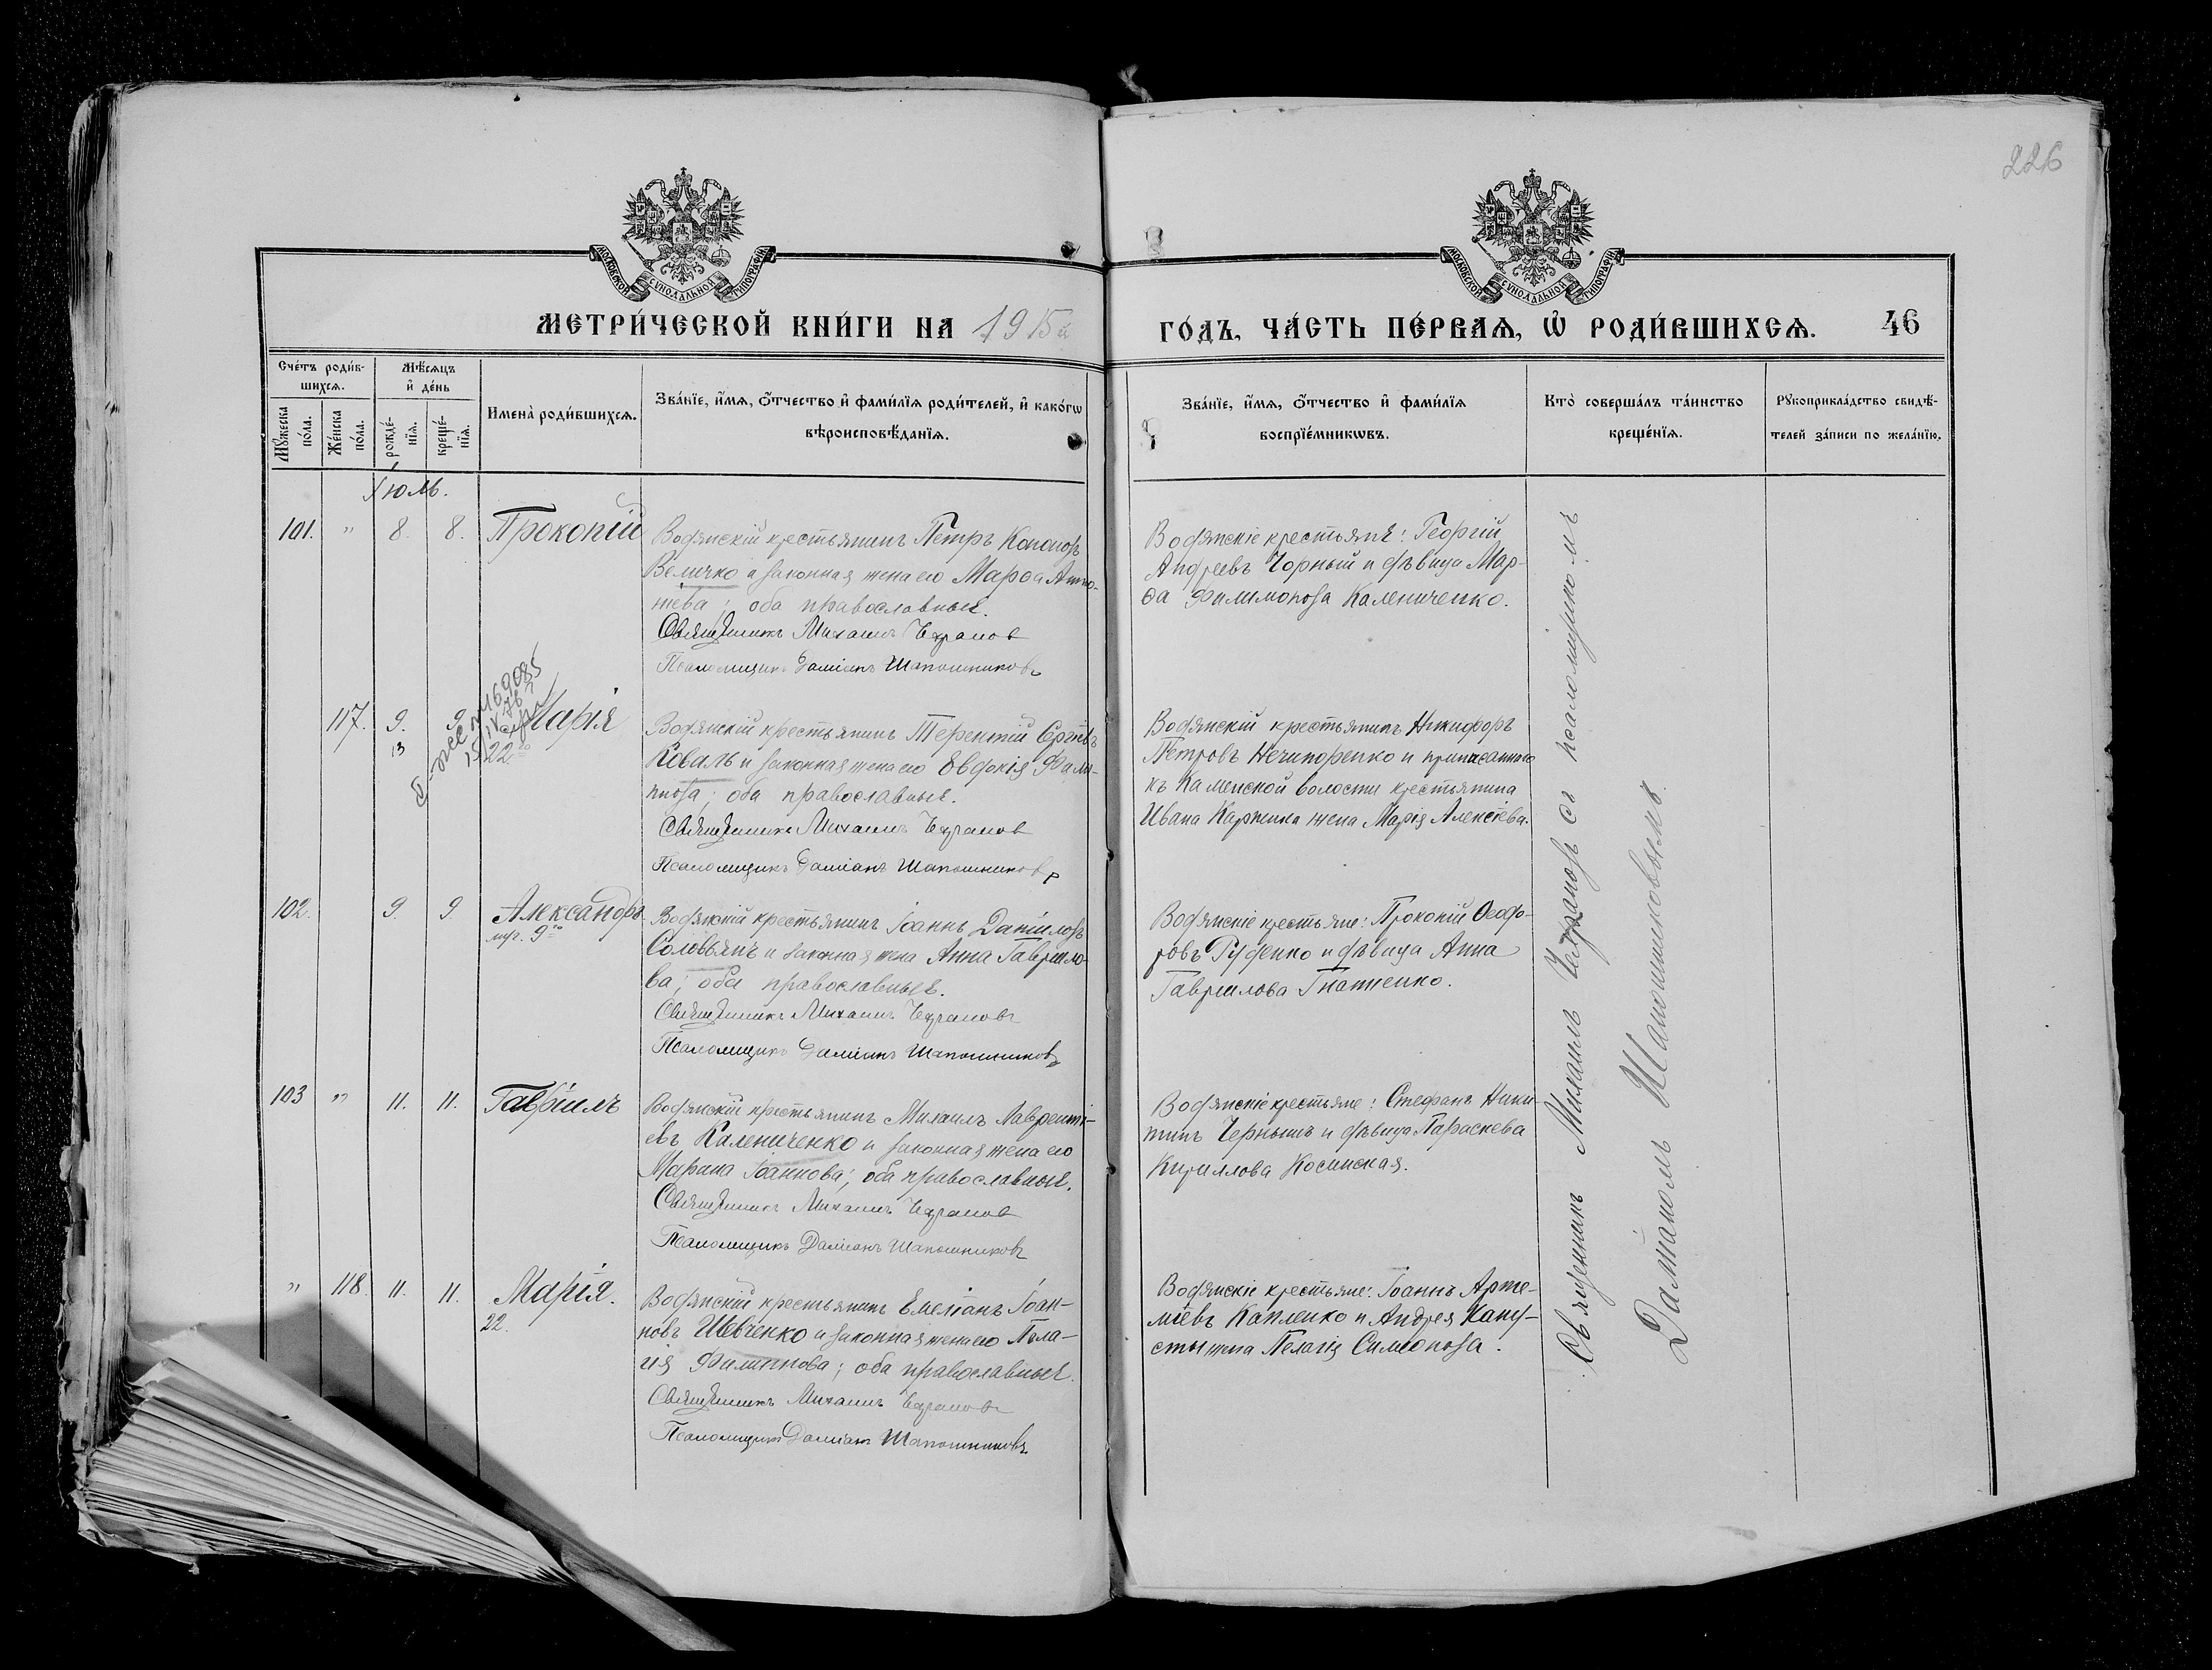 226
МОСКОВСКОЙ СУНОДАЛЬНОЙ ТИПОГРАФІИ
МОСКОВСКОЙ СУНОДАЛЬНОЙ ТИПОГРАФІИ
МЕТРИ́ЧЕСКОЙ КНИ́ГИ НА 1915
ГО́ДЪ, ЧА́СТЬ ПЕ́РВАѦ, Ѡ РОДИ́ВШИХСѦ. 46
Сче́тъ роди́в-
шихсѧ.
Мꙋжеска по́ла.
Же́нска по́ла.
Мѣ́сѧцъ
и҆ де́нь
рожде́-
нїѧ.
креще́-
нїѧ.
Имена̀ роди́вшихсѧ.
Зва́нїе, и҆́мѧ, ѻ҆́тчество и҆ фами́лїѧ роди́телей, и҆ како́гѡ
вѣроисповѣ́данїѧ.
Зва́нїе, и҆́мѧ, ѻ҆́тчество и҆ фами́лїѧ
воспрїе́мникѡвъ.
Кто̀ соверша́лъ та́инство
креще́нїѧ.
Рꙋкоприкла́дство свидѣ́-
телей за́писи по жела́нїю.
Іюль.
101. " 8. 8. Прокопій
Водянскій крестьянинъ Петръ Кононовъ
Величко и законная жена его Марѳа Анто-
нова; оба православные.
Священникъ Михаилъ
Псаломщикъ Даміанъ Шапошниковъ
Водянскіе крестьяне: Георгій
Андреевъ Чорный и дѣвица Мар-
ѳа Филимонова Калениченко.
117. 9. 9. Марія
13 22
Водянскій крестьянинъ Терентій Сергіевъ
Коваль и законная жена его Евдокія Фили-
ппова; оба православные.
Священникъ Михаилъ
Псаломщикъ Даміанъ Шапошниковъ
Водянскій крестьянинъ Никифоръ
Петровъ Нечипоренко и приписаннаго
къ Каменской волости крестьянина
Ивана жена Марія Алексѣева.
102. 9. 9 Александръ
Водянскій крестьянинъ Іоаннъ Даніиловъ
Соловьянъ и законная жена Анна Гаврило-
ва; оба православные.
Священникъ Михаилъ
Псаломщикъ Даміанъ Шапошниковъ
Водянскіе крестьяне: Прокопій Ѳеодо-
ровъ Руденко и дѣвица Анна
Гаврилова Гнатенко.
103 " 11. 11. Гавріилъ
Водянскій крестьянинъ Михаилъ Лаврентi-
евъ Калениченко и законная жена его
Марина Іоаннова; оба православные.
Священникъ Михаилъ
Псаломщикъ Даміанъ Шапошниковъ
Водянскіе крестьяне: Стефанъ Ники-
тинъ Чернышъ и дѣвица Параскева
Кириллова Косинская.
" 118. 11. 11. Марія.
22.
Водянскій крестьянинъ Емеліанъ Іоан-
новъ Шевченко и законная жена его Пела-
гія Филиппова; оба православные.
Священникъ Михаилъ
Псаломщикъ Даміанъ Шапошниковъ
Водянскіе крестьяне: Іоаннъ Арте-
міевъ Капленко и Андрея Капу-
сты жена Пелагія Симонова.
Священникъ Михаилъ съ псаломщикомъ
Даміаномъ Шапошниковымъ.